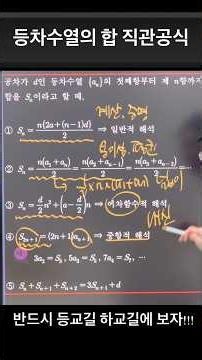 등차수열의 합 직관공식
공차가 d인 등차수열 {aₙ}의 첫째항부터 제 n항까지
합을 Sₙ이라고 할 때,
① Sₙ = n(2a+(n-1)d)/2 ⇒ 일반적 해석
② Sₙ = n(a₁+aₙ)/2 = n(a₂+aₙ₋₁)/2 = n(a₃+aₙ₋₂)/2 = ⋯
③ Sₙ = d/2 n² + (a - d/2)n ⇒ 이차함수적 해석
④ S₂ₙ₊₁ = (2n+1)aₙ₊₁ ⇒ 중항적 해석
3a₂ = S₃, 5a₃ = S₅, 7a₄ = S₇, ⋯
⑤ Sₙ + Sₙ₊₁ + Sₙ₊₂ = 3Sₙ₊₁ + d
반드시 등교길 하교길에 보자!!!